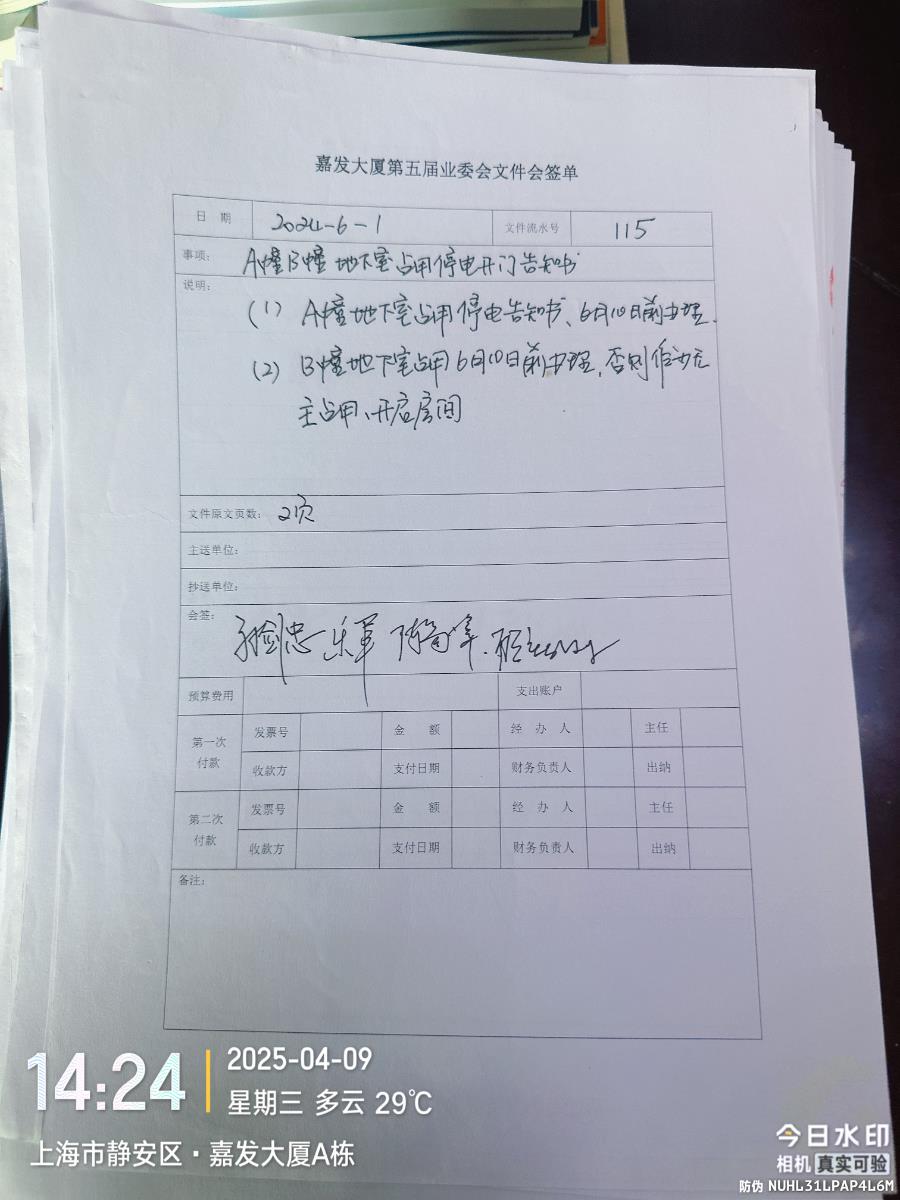 嘉发大厦第五届业委会文件会签单
日 期 2024-6-1 文件流水号 115
事项: A幢B幢地下室占用停电开门告知书
说明:
(1) A幢地下室占用停电告知书、6月10日前办理.
(2) B幢地下室占用6月10日前办理,否则作为无
主占用、开启房间
文件原文页数: 2页
主送单位:
抄送单位:
会签: 乐军
预算费用 支出账户
第一次付款 发票号 金 额 经 办 人 主任
收款方 支付日期 财务负责人 出纳
第二次付款 发票号 金 额 经 办 人 主任
收款方 支付日期 财务负责人 出纳
备注:
14:24
2025-04-09
星期三 多云 29℃
上海市静安区·嘉发大厦A栋
今日水印
相机 真实可验
防伪 NUHL31LPAP4L6M